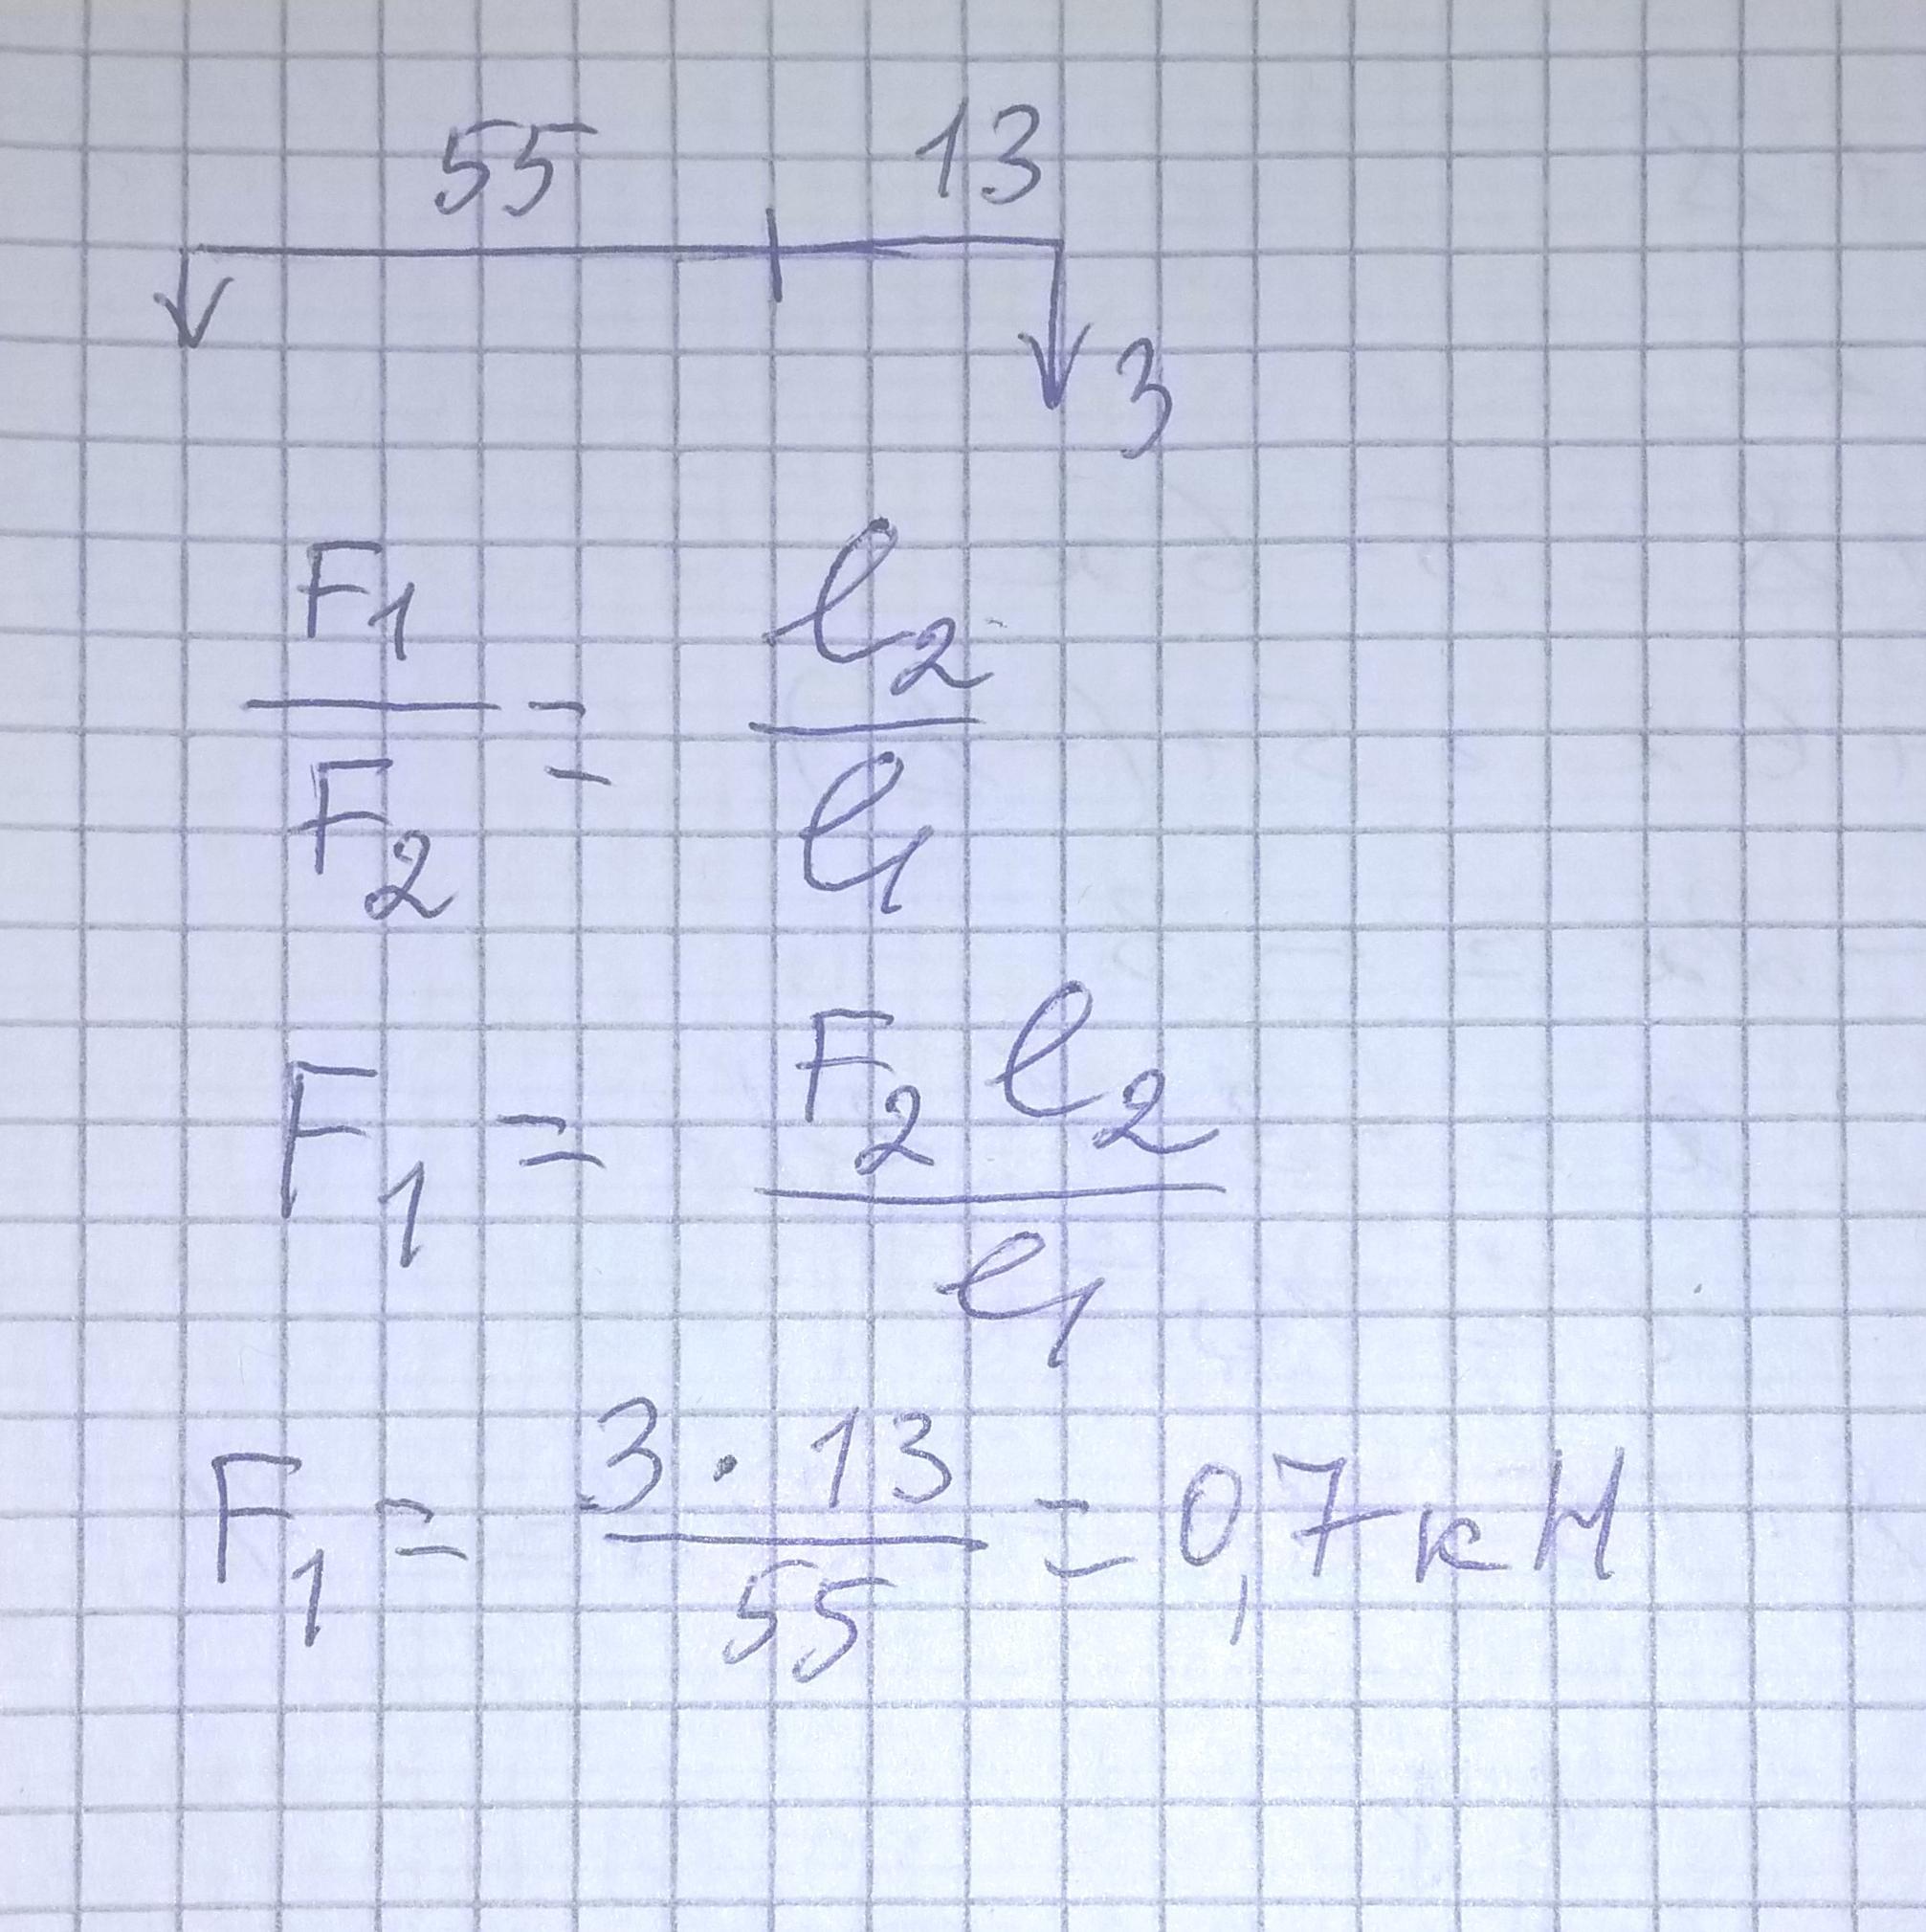 55 13
3
F1/F2 = l2/l1
F1 = F2 l2/l1
F1 = 3·13/55 = 0,7 кН